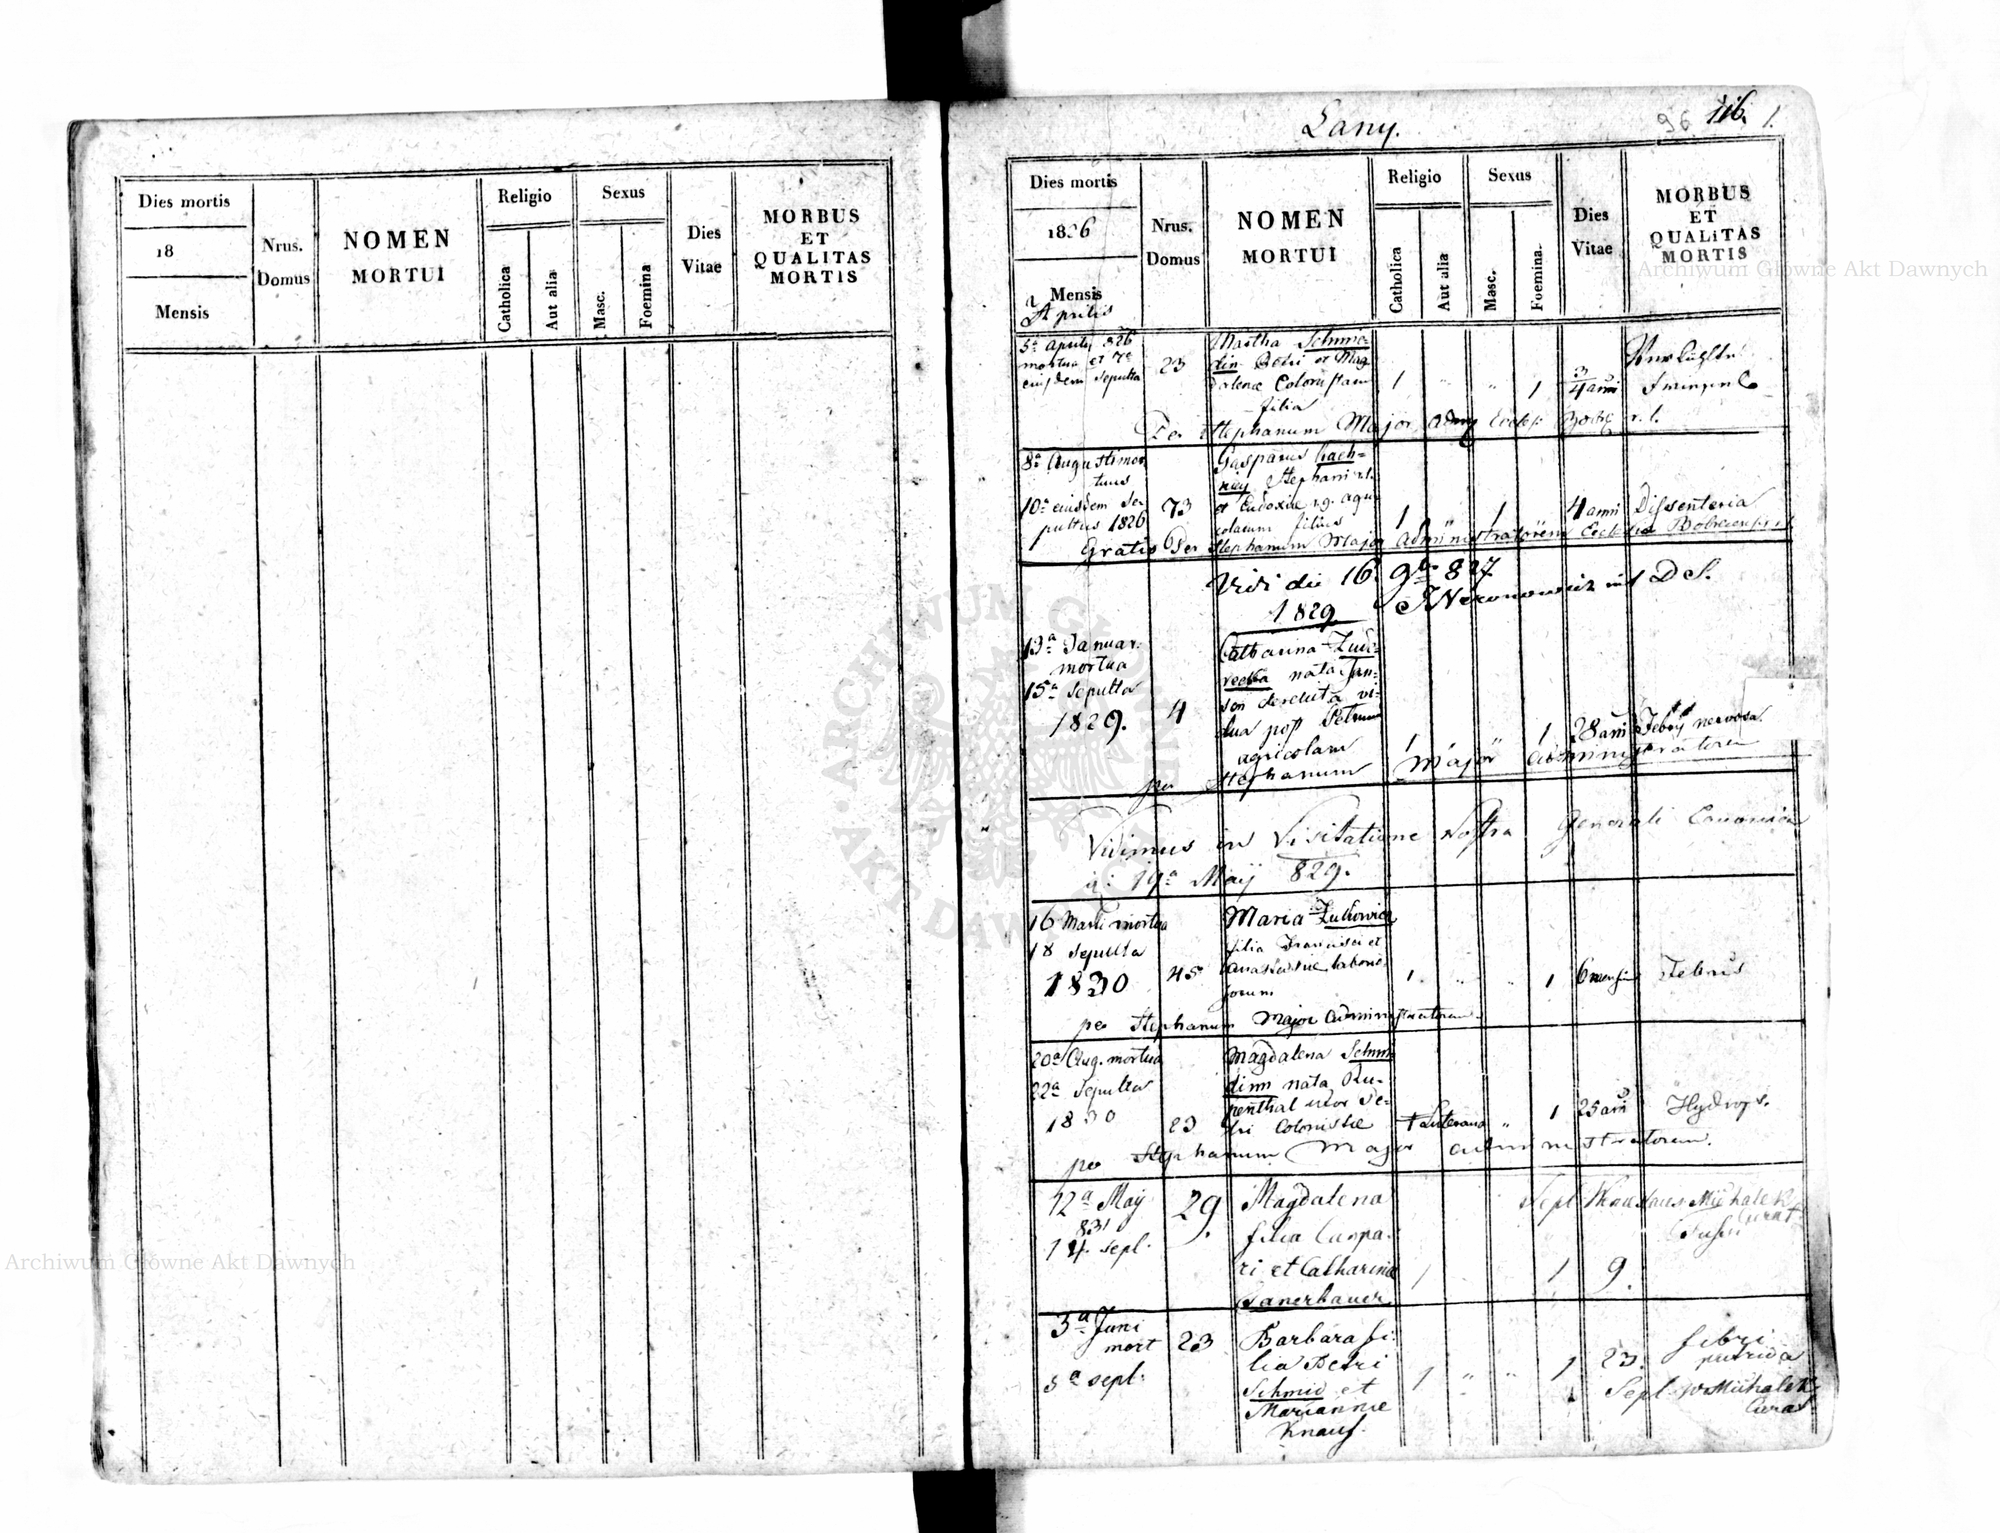 Dies mortis
18
Mensis
Nrus.
Domus
NOMEN
MORTUI
Religio
Catholica
Aut alia
Sexus
Masc.
Foemina
Dies
Vitae
MORBUS
ET
QUALITAS
MORTIS
Lany.
96 116. 1.
Dies mortis
1826
Mensis
Aprilis
Nrus.
Domus
NOMEN
MORTUI
Religio
Catholica
Aut alia
Sexus
Masc.
Foemina.
Dies
Vitae
MORBUS
ET
QUALITAS
MORTIS
5a Aprilis 826
mortua et 7a
ejusdem sepulta
23
Martha Schmi-
din Petri et Mag
dalenae Colonistarum
filia
1 " " 1
3/4 anni
Per Stephanum Major Adm Eccles r. l.
8a Augusti mor
tuus
10a eiusdem se
pultus 1826
73
Gasparus
Stephani r.l.
et Eudoxiae r.g. agri
colarum filius
1 " 1
4 anni
Dissenteria
Gratis Per Stephanum Major Administratorem Ecclesiae Bobrecensis r.l.
Vidi die 16. 9br 827
D S.
1829
13a Januar.
mortua
15a Sepulta
1829.
4
Catharina
nata Jan-
son derelicta vi-
dua post Petrum
agricolam
1 " 1
28 anni
Febris nervosa.
per Stephanum Major Administratorem
Vidimus in Visitatione Nostra Generali Canonica
d: 19a Maij 829.
16 Martii mortua
18 sepulta
1830
45
Maria Zulkowicz
filia Francisci et
Anastasiae laborio
sorum
1 " " 1
6 mensium
Febris
per Stephanum Major Administratorem.
20a Aug. mortua
22a Sepulta
1830
23
Magdalena Schmi
dinn nata Ru-
penthal uxor Pe-
tri Colonistae
Luterana " 1
25 anni
Hydrops.
per Stephanum Major administratorem.
12a Maij
831
14. sepl.
29.
Magdalena
filia Caspa-
ri et Catharinae
Sauerbauer
1 1 9.
Sepl Michalek
3a Juni
mort
5a sepl.
23
Barbara fi-
lia Petri
Schmid et
Mariannae
Knauf.
1 " " 1
23.
febri
putrida
Sepl. W Michalek
Curat
Archiwum Główne Akt Dawnych
Archiwum Główne Akt Dawnych
ARCHIWUM GŁÓWNE
AKT DAWNYCH